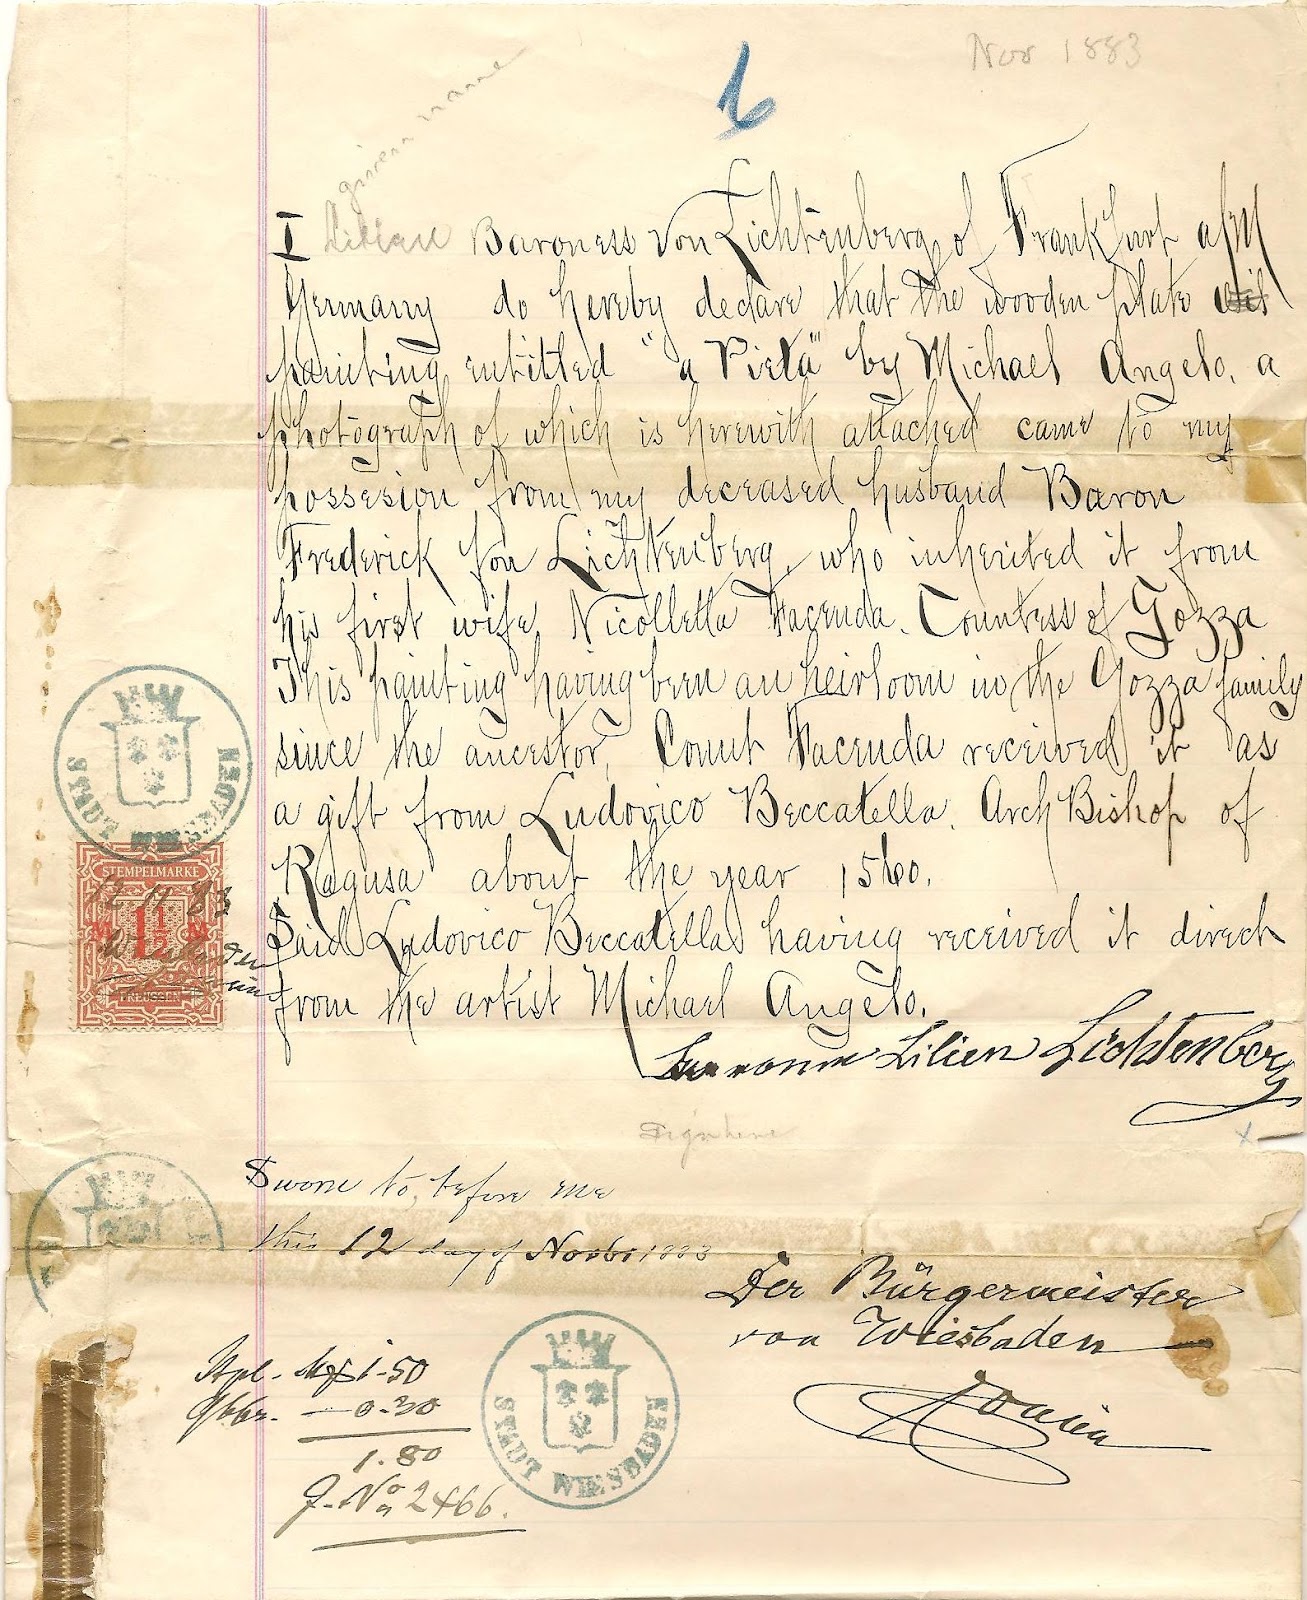 Nov 1883
6
given name
I Lillian Baroness von Lichtenberg of Frankfurt a/M
Germany do hereby declare that the wooden plate
painting entitled "a Pieta" by Michael Angelo, a
photograph of which is herewith attached came to my
possesion from my deceased husband Baron
Frederick fon Lichtenberg, who inherited it from
his first wife, Nicolletta Facenda. Countess of Gozza
This painting having been an heirloom in the Gozza family
since the ancestor, Count Facenda received it as
a gift from Ludovico Beccatella. Arch Bishop of
Ragusa about the year 1560.
Said Ludovico Beccatella having received it direct
from the artist Michael Angelo.
Baronin Lilien Lichtenberg
Signature
x
STADT WIESBADEN
STEMPELMARKE
12.11.83
M 1½ M
PREUSSEN
Sworn to, before me
this 12 day of Novbr 1883
Der Bürgermeister
von Wiesbaden
Stpl. Mk 1.50
Gbhr. — 0.30
1.80
J. No 2466.
STADT WIESBADEN